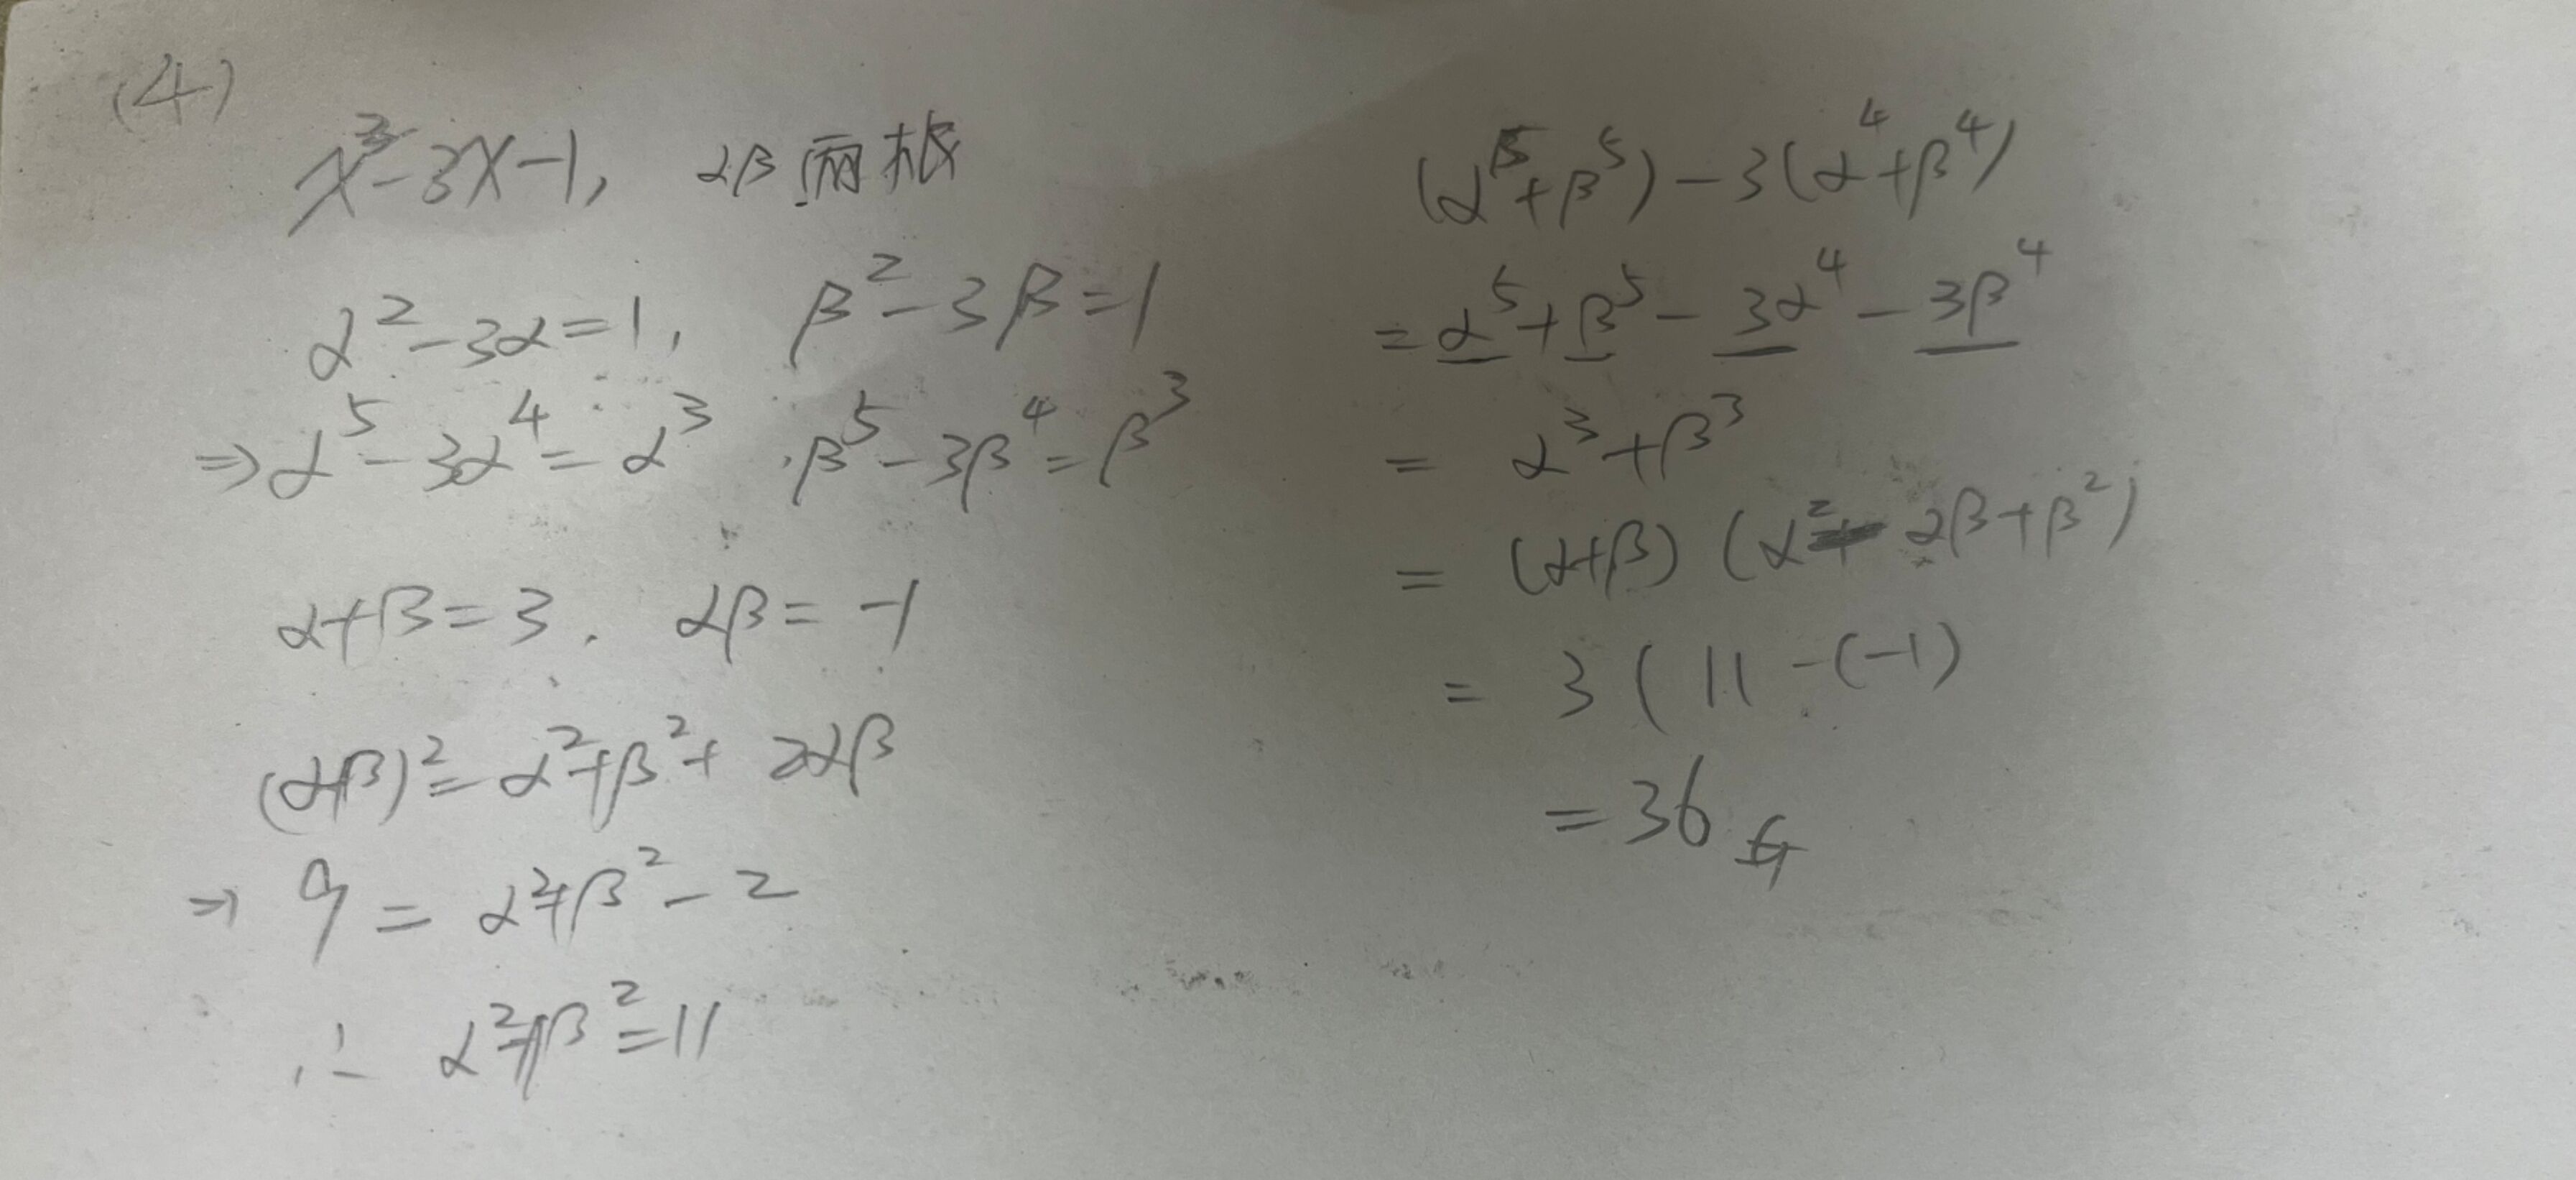 (4)
x²-3x-1, αβ 兩根
α²-3α=1, β²-3β=1
⇒α⁵-3α⁴=α³ . β⁵-3β⁴=β³
α+β=3. αβ=-1
(α+β)²=α²+β²+2αβ
⇒ 9=α²+β²-2
∴ α²+β²=11
(α⁵+β⁵)-3(α⁴+β⁴)
=α⁵+β⁵-3α⁴-3β⁴
=α³+β³
=(α+β)(α²-αβ+β²)
=3(11-(-1)
=36